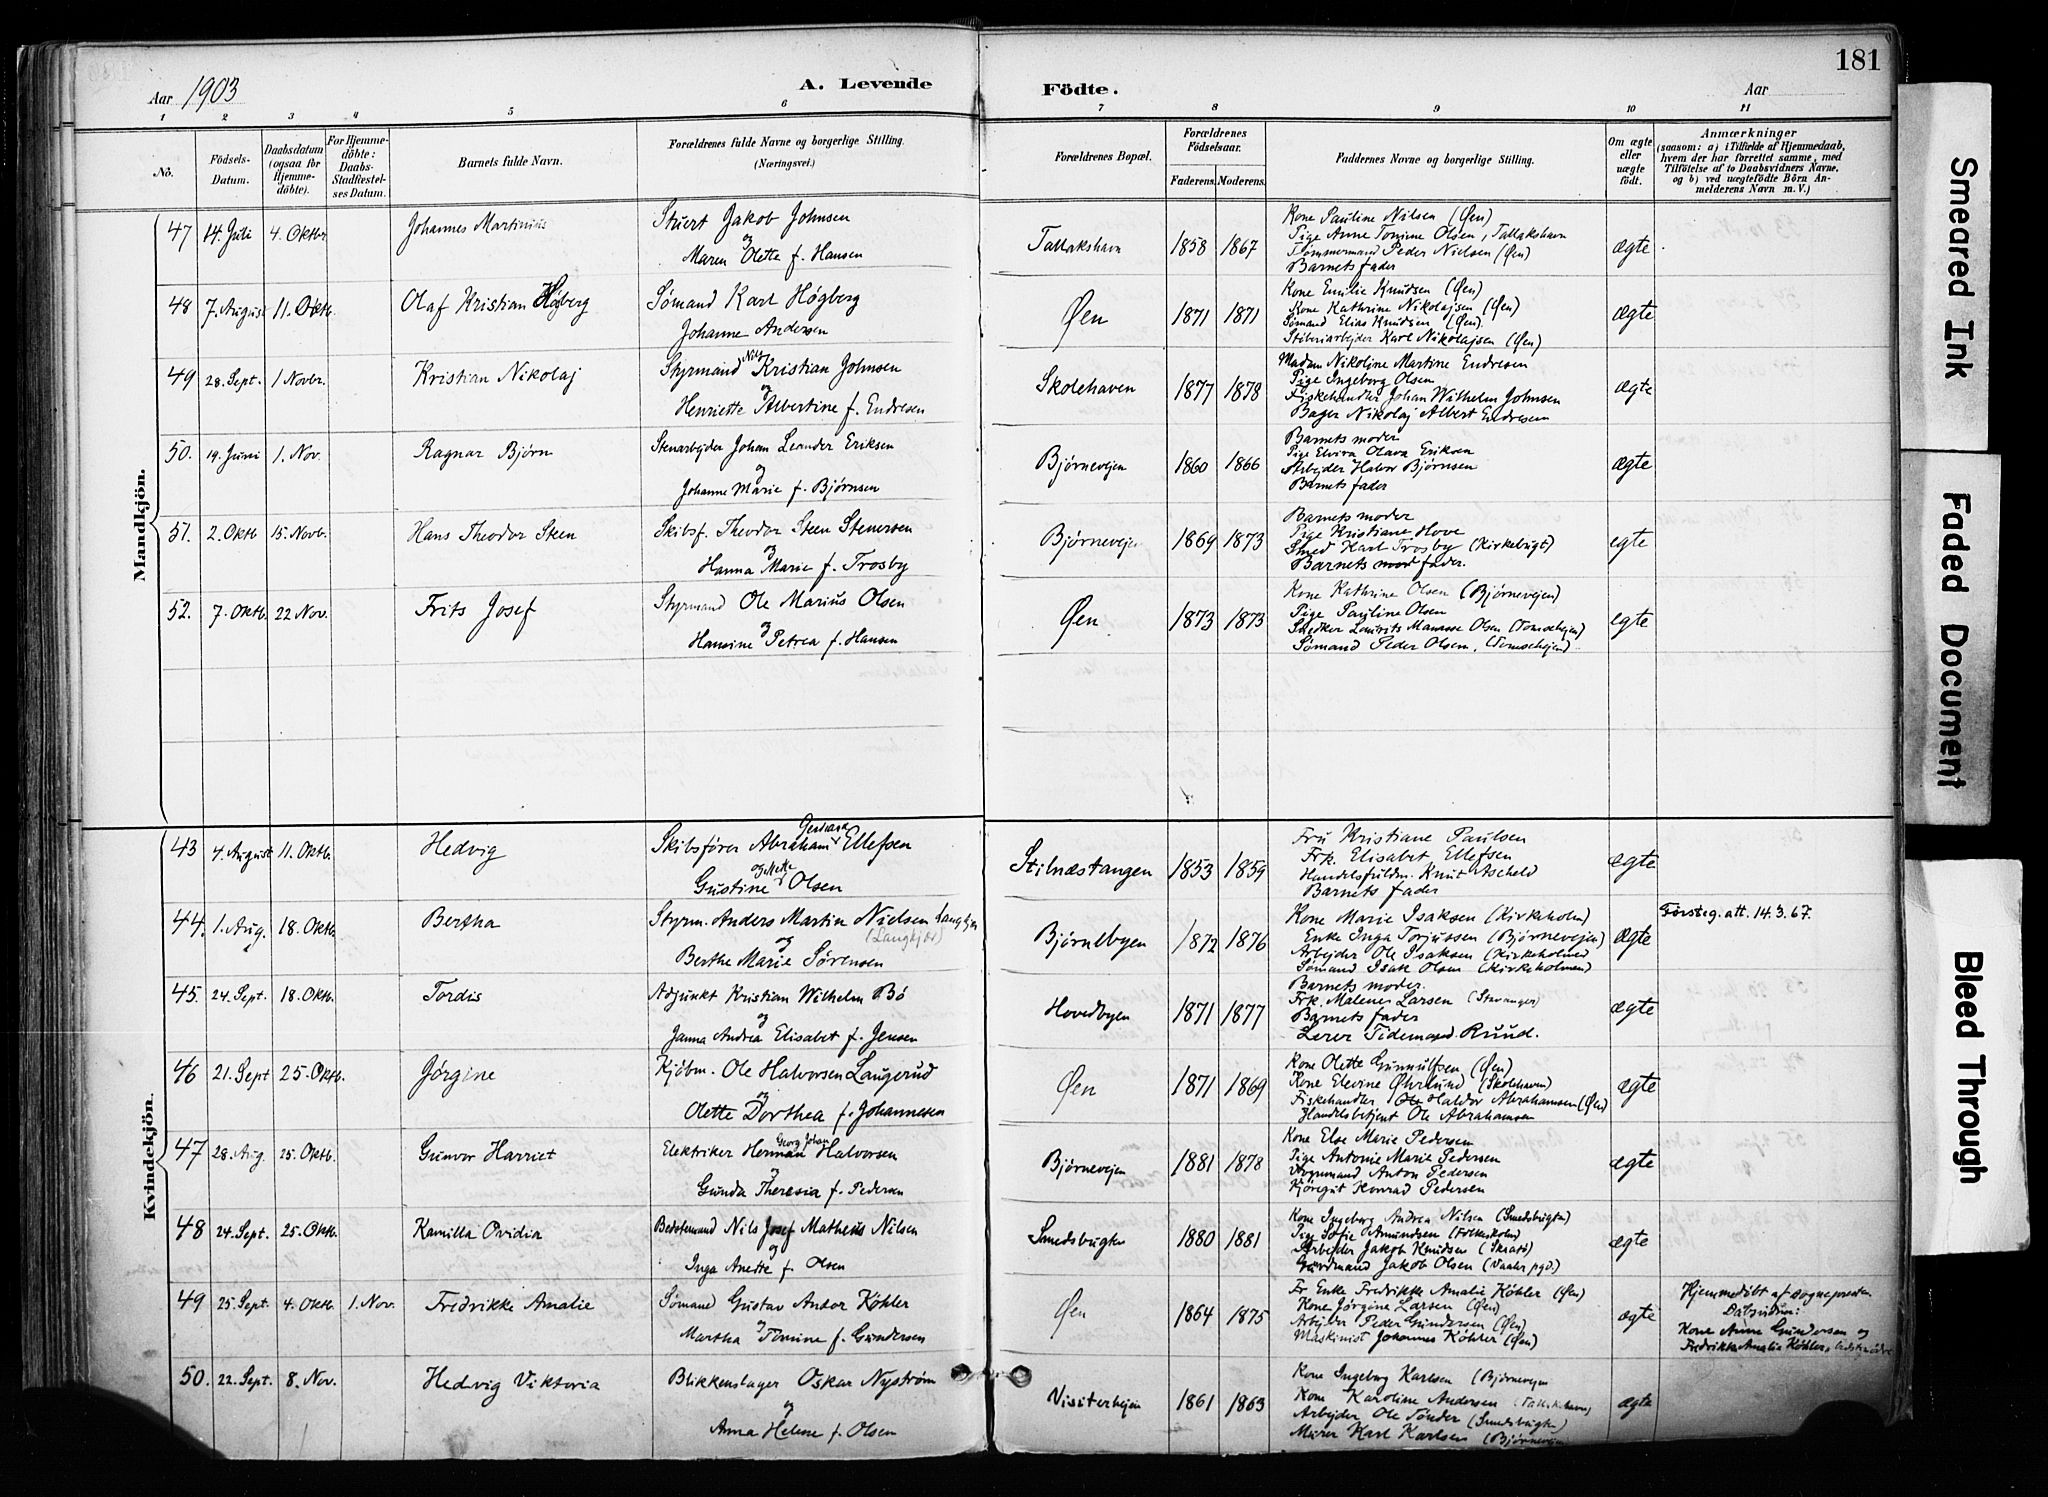 181
Aar 1903
A. Levende
Födte.
Aar
1 2 3 4 5 6 7 8 9 10 11
No.
Födsels-Datum.
Daabsdatum (ogsaa for Hjemmedöbte).
For Hjemmedöbte: Daabs-Stadfæstelses Datum.
Barnets fulde Navn.
Forældrenes fulde Navne og borgerlige Stilling. (Næringsvei.)
Forældrenes Bopæl.
Forældrenes Födselsaar.
Faderens. Moderens.
Faddernes Navne og borgerlige Stilling.
Om ægte eller uægte födt.
Anmærkninger
(saasom: a) i Tilfælde af Hjemmedaab, hvem der har forrettet samme, med Tilföielse af to Daabsvidners Navne, og b) ved uægtefödte Börn Anmelderens Navn m. V.)
Mandkjön.
47 14. Juli 4. Oktbr Johannes Martinius
Stuert Jakob Johnsen
og
Maren Olette f. Hansen
Tallakshavn 1858 1867
Kone Pauline Nilsen (Øen)
Pige Anne Tomine Olsen, Tallakshavn
Tømmermand Peder Nielsen (Øen)
Barnets fader
ægte
48 7. August 11. Oktb. Olaf Kristian Høgberg
Sømand Karl Høgberg
Johanne Andersen
Øen 1871 1871
Kone Emilie Knudsen (Øen)
Kone Kathrine Nikolajsen (Øen)
Sømand Elias Knudsen (Øen).
Stiberiarbejder Karl Nikolajsen (Øen)
ægte
49 28. Sept. 1 Novbr. Kristian Nikolaj
Styrmand Nils Kristian Johnsen
og
Henriette Albertine f. Endresen
Skolehaven 1877 1878
Madam Nikoline Martine Endresen
Pige Ingeborg Olsen
Fiskehandler Johan Wilhelm Johnsen
Bager Nikolaj Albert Endresen
ægte
50. 19. Juni 1. Nov. Ragnar Bjørn
Stenarbejder Johan Leander Eriksen
og
Johanne Marie f. Bjørnsen
Bjørnevejen 1860 1866
Barnets moder
Pige Elvira Olava Eriksen
Arbejder Halvor Bjørnsen
Barnets fader
ægte
51. 2. Oktb 15. Novb. Hans Theodor Steen
Skibsf. Theodor Steen Stenersen
og
Hanna Marie f. Trosby
Bjørnevejen 1869 1873
Barnets moder
Pige Kristiane Hove
Smed Karl Trosby (Kirkebugt)
Barnets fader.
egte
52. 7. Oktb. 22 Nov. Frits Josef
Styrmand Ole Marius Olsen
og
Hansine Petrea f. Hansen
Øen 1873 1873
Kone Kathrine Olsen (Bjørnevejen)
Pige Pauline Olsen
Snedker Lauritz Manasse Olsen
Sømand Peder Olsen,
egte
Kvindekjön.
43 4. August 11. Oktb. Hedvig
Skibsfører Abraham Ellefsen
og Mette
Gustine Olsen
Stilnæstangen 1853 1859
Fru Kristiane Paulsen
Frk. Elisabet Ellefsen
Handelsfuldm. Knut Ascheld
Barnets fader
ægte
44. 1. Aug. 18. Oktb. Bertha
Styrm. Anders Martin Nielsen Langkjær
(Langkjær)
og
Berthe Marie Sørensen
Bjørnebyen 1872 1876
Kone Marie Isaksen (Kirkeholm)
Enke Inga Torjussen (Bjørnevejen)
Arbejder Ole Isaksen (Kirkeholmen)
Sømand Isak Olsen (Kirkeholmen)
ægte
Førsteg. att. 14.3.67.
45. 24. Sept. 18. Oktb. Tordis
Adjunkt Kristian Wilhelm Bö
og
Janna Andrea Elisabet f. Jensen
Hovedbyen 1871 1877
Barnets moder.
Frk. Malene Larsen (Stavanger)
Barnets fader
Lærer Tidemand Ruud.
ægte
46 21. Sept 25. Oktb. Jørgine
Kjøbm. Ole Halvorsen Laugerud
og
Olette Dorthea f. Johannesen
Øen 1871 1869
Kone Olette Gunnulfsen (Øen)
Kone Elevine Øhrlund (Skolehavn)
Fiskehandler Haldor Abrahamsen (Øen)
Handelsbetjent Ole Abrahamsen
ægte
47 28. Aug. 25. Oktb. Gunvor Harriet
Elektriker Herman Georg Johan Halvorsen
og
Gunda Theresia f. Pedersen
Bjørnevejen 1881 1878
Kone Else Marie Pedersen
Pige Antonie Marie Pedersen
Vognmand Anton Pedersen
Kjøregut Konrad Pedersen
ægte
48 24. Sept. 25. Oktb. Kamilla Ovidia
Bedstemand Nils Josef Matheus Nilsen
og
Inga Anette f. Olsen
Smedsbugten 1880 1881
Kone Ingeborg Andrea Nilsen (Smedsbugten)
Pige Sofie Amundsen (Folkeskolen)
Arbejder Jakob Knudsen (Skraat)
Gaardmand Jakob Olsen (Vaaler pgd.)
ægte
49 25. Sept. 4. Oktb. 1. Nov. Fredrikke Amalie
Sømand Gustav Andor Köhler
og
Martha Tomine f. Gundersen
Øen 1864 1875
Fr Enke Fredrikke Amalie Köhler (Øen)
Kone Jørgine Larsen (Øen)
Arbejder Peder Gundersen (Øen)
Maskinist Johannes Köhler (Øen)
ægte
Hjemmedöbt af sognepresten
Dåbsvidner:
Kone Anne Gundersen og
Fredrikke Amalie Köhler,
50. 22. Sept. 8. Nov. Hedvig Viktoria
Blikkenslager Oskar Nyström
og
Anna Helene f. Olsen
Visiterhejen 1861 1863
Kone Ingeborg Karlsen (Bjørnevejen
Kone Karoline Andersen (Tallakshavn)
Arbejder Ole Tönder (Smedsbugten)
Murer Karl Karlsen (Bjørnevejen)
ægte
Smeared Ink
Faded Document
Bleed Through